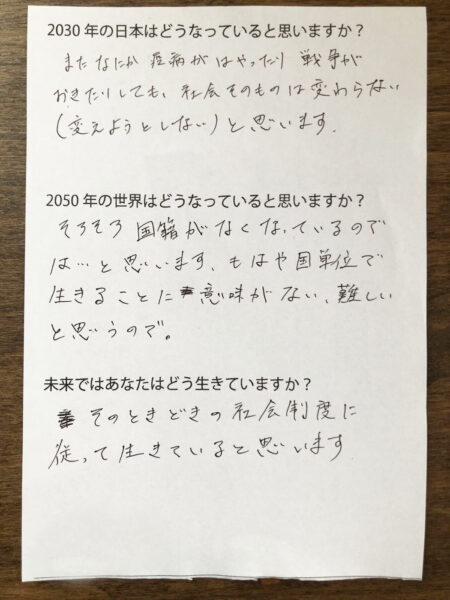 2030 年の日本はどうなっていると思いますか？
またなにか疫病がはやったり 戦争が
おきたりしても、社会そのものは変わらない
(変えようとしない)と思います.
2050 年の世界はどうなっていると思いますか？
そろそろ 国籍がなくなっているので
は…と思います、もはや国単位で
生きることに 意味がない、難しい
と思うので。
未来ではあなたはどう生きていますか？
そのときどきの社会制度に
従って生きていると思います